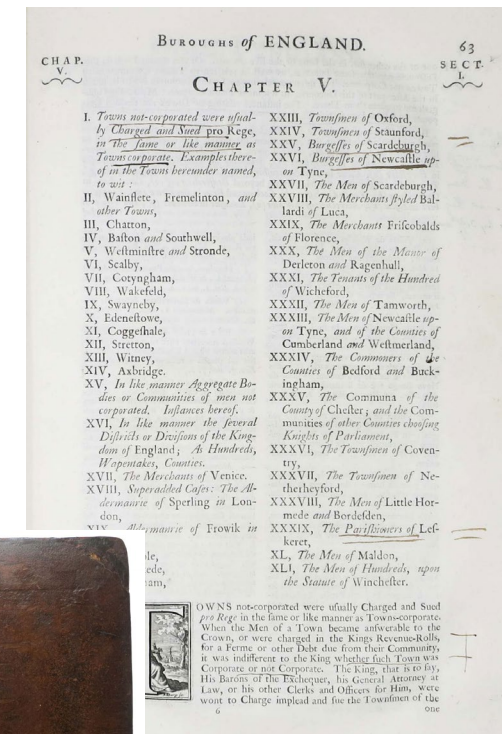 BUROUGHS of ENGLAND. 63
CHAP. V.
SECT. I.
CHAPTER V.
I. Towns not-corporated were uſual-
ly Charged and Sued pro Rege,
in the ſame or like manner as
Towns corporate. Examples there-
of in the Towns hereunder named,
to wit :
II, Wainflete, Fremelinton, and
other Towns,
III, Chatton,
IV, Baſton and Southwell,
V, Weſtminſtre and Stronde,
VI, Scalby,
VII, Cotyngham,
VIII, Wakefeld,
IX, Swayneby,
X, Edeneſtowe,
XI, Coggeſhale,
XII, Stretton,
XIII, Witney,
XIV, Axbridge.
XV, In like manner Aggregate Bo-
dies or Communities of men not
corporated. Inſtances hereof.
XVI, In like manner the ſeveral
Diſtricts or Diviſions of the King-
dom of England; As Hundreds,
Wapentakes, Counties.
XVII, The Merchants of Venice.
XVIII, Superadded Caſes: The Al-
dermanrie of Sperling in Lon-
don,
XIX, Aldermanrie of Frowik in
ble,
ede,
ham,
XXIII, Townſmen of Oxford,
XXIV, Townſmen of Staunford,
XXV, Burgeſſes of Scardeburgh,
XXVI, Burgeſſes of Newcaſtle up-
on Tyne,
XXVII, The Men of Scardeburgh,
XXVIII, The Merchants ſtyled Bal-
lardi of Luca,
XXIX, The Merchants Friſcobalds
of Florence,
XXX, The Men of the Manor of
Derleton and Ragenhull,
XXXI, The Tenants of the Hundred
of Wicheford,
XXXII, The Men of Tamworth,
XXXIII, The Men of Newcaſtle up-
on Tyne, and of the Counties of
Cumberland and Weſtmerland,
XXXIV, The Commoners of the
Counties of Bedford and Buck-
ingham,
XXXV, The Communa of the
County of Cheſter; and the Com-
munities of other Counties chooſing
Knights of Parliament,
XXXVI, The Townſmen of Coven-
try,
XXXVII, The Townſmen of Ne-
therheyford,
XXXVIII, The Men of Little Hor-
mede and Bordeſden,
XXXIX, The Pariſhioners of Leſ-
keret,
XL, The Men of Maldon,
XLI, The Men of Hundreds, upon
the Statute of Wincheſter.
OWNS not-corporated were uſually Charged and Sued
pro Rege in the ſame or like manner as Towns-corporate.
When the Men of a Town became anſwerable to the
Crown, or were charged in the Kings Revenue-Rolls,
for a Ferme or other Debt due from their Community,
it was indifferent to the King whether ſuch Town was
Corporate or not Corporate. The King, that is to ſay,
His Barons of the Exchequer, his General Attorney at
Law, or his other Clerks and Officers for Him, were
wont to Charge implead and ſue the Townſmen of the
6 one